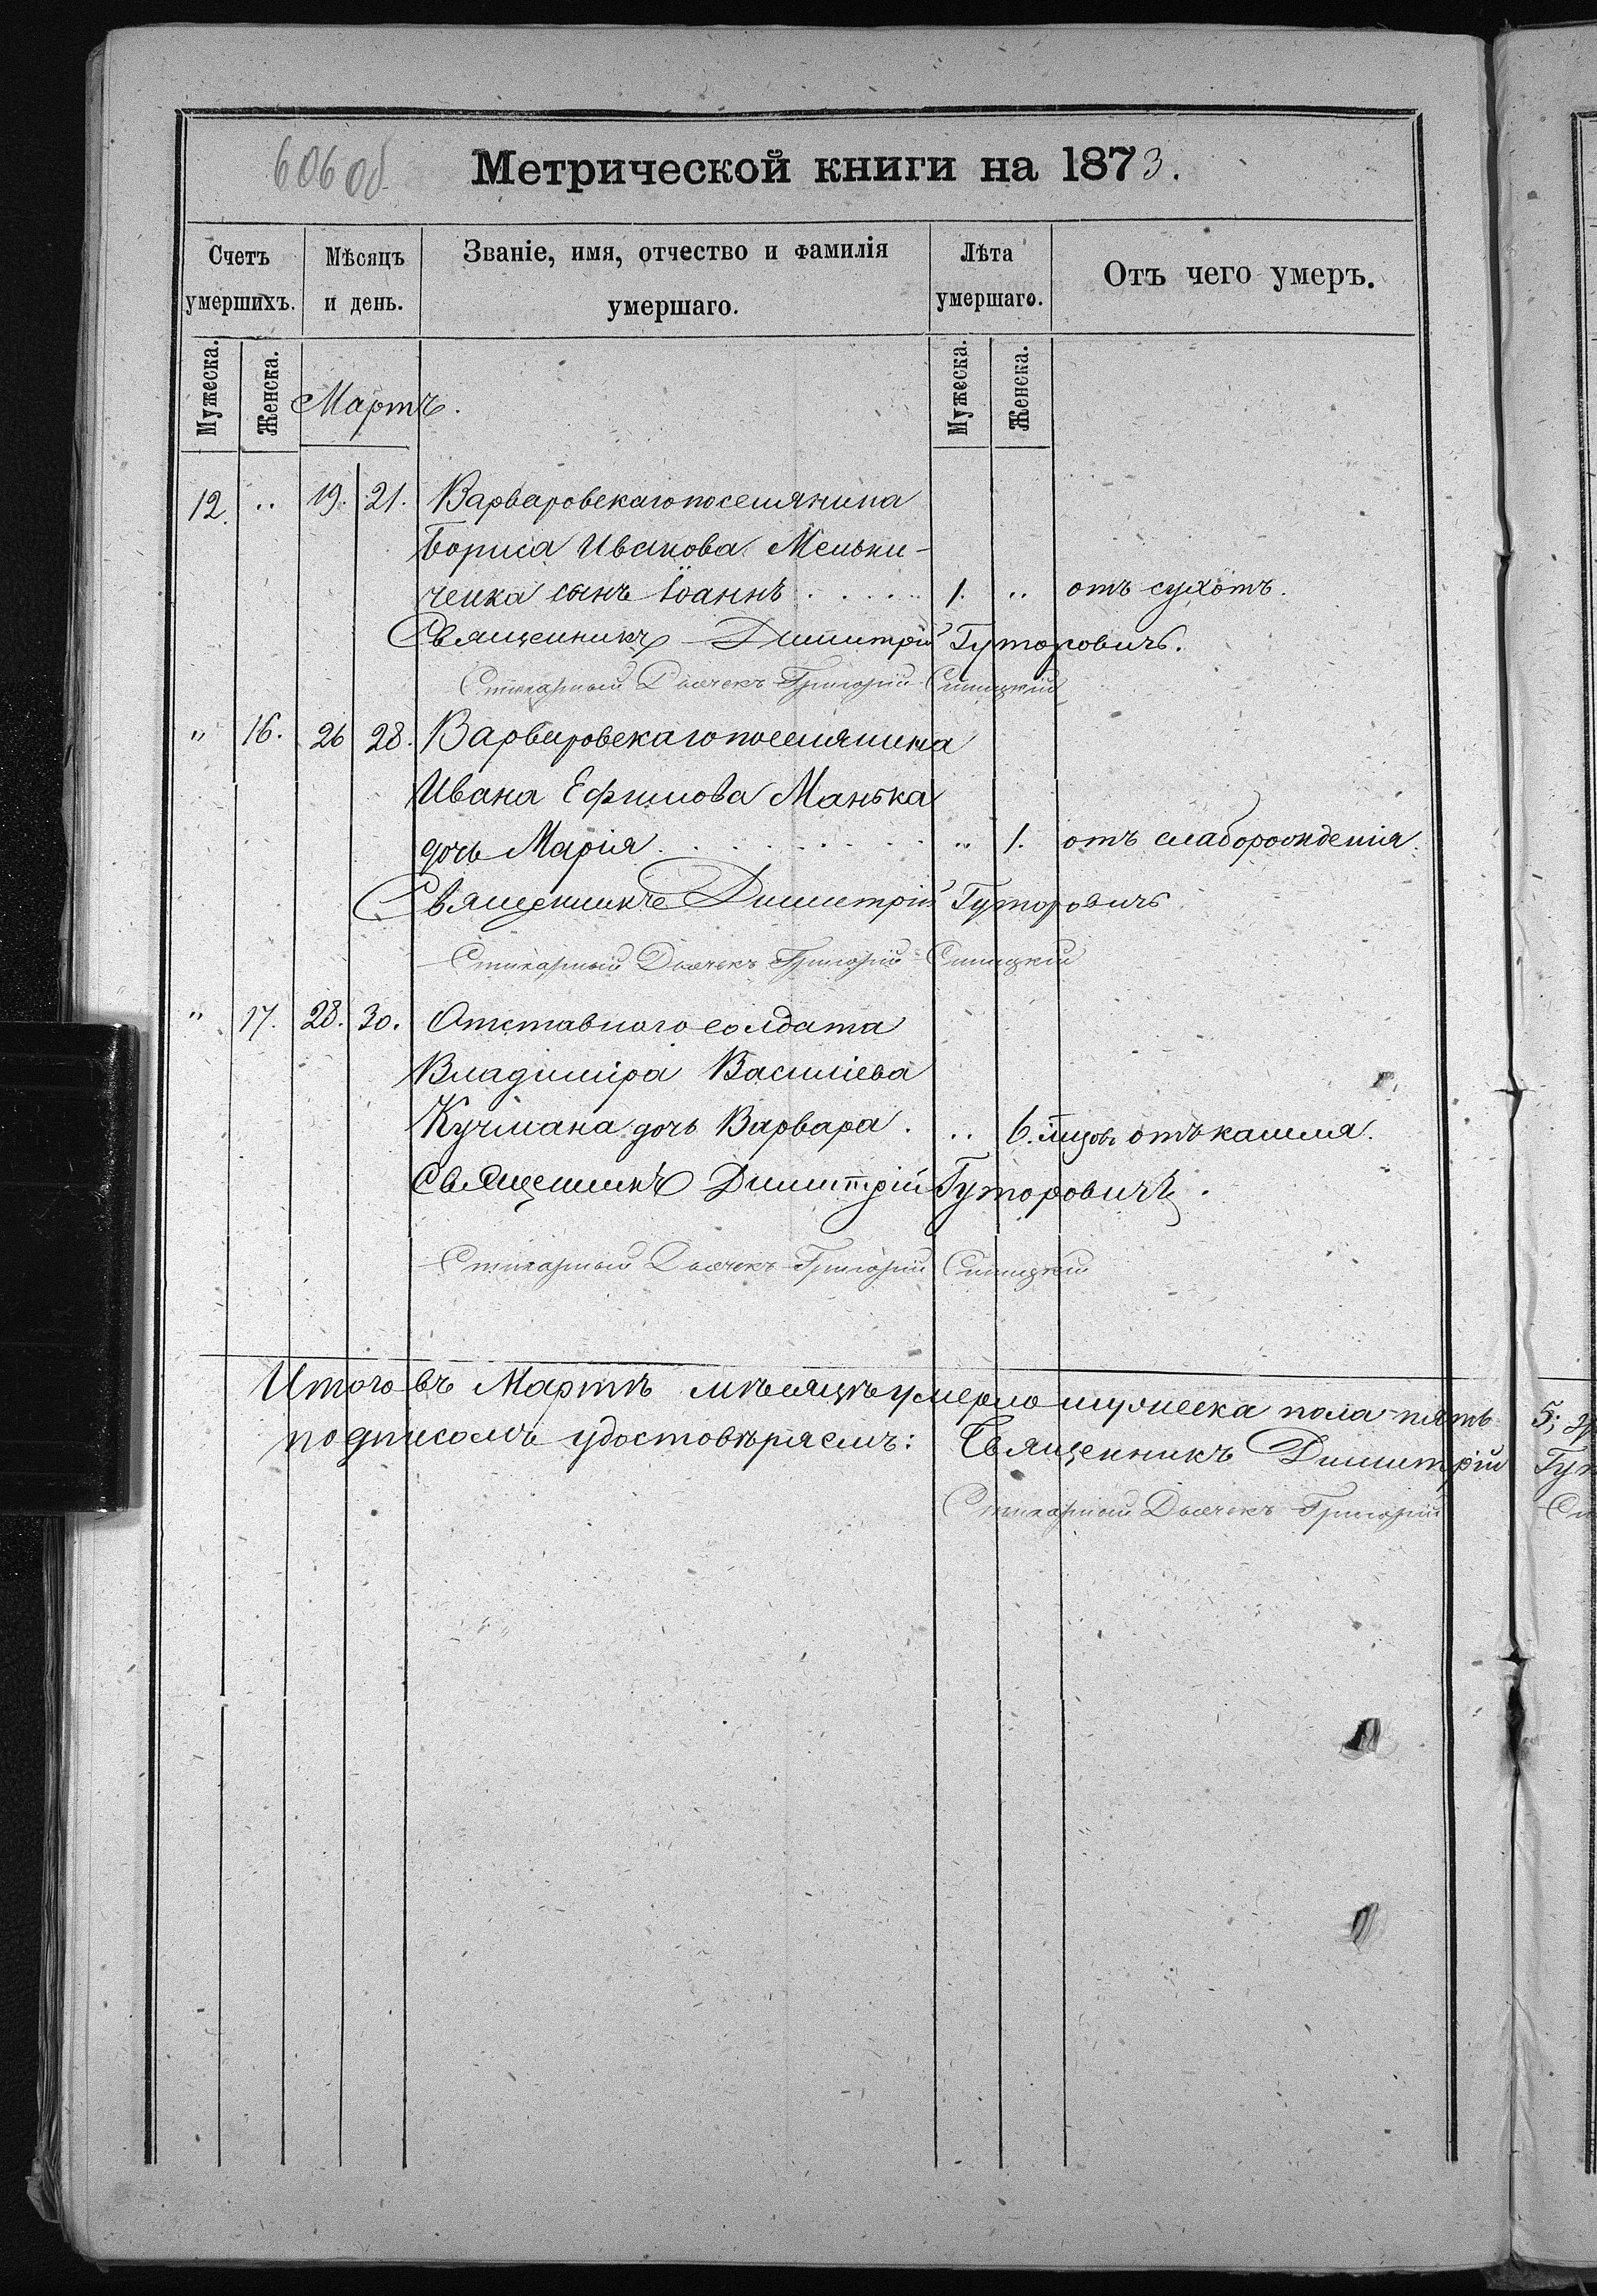 606об
Метрической книги на 1873.
Счетъ умершихъ.
Мѣсяцъ и день.
Званіе, имя, отчество и фамилія умершаго.
Лѣта умершаго.
Отъ чего умеръ.
Мужеска.
Женска.
Мартъ.
Мужеска.
Женска.
12. „ 19. 21. Варваровскаго поселянина
Бориса Иванова Мельни-
ченка сынъ Іоаннъ . . . . . 1. „ отъ сухотъ.
Священникъ Димитрій Гуторовичъ.
Стихарный Дьячекъ Григорій
„ 16. 26 28. Варваровскаго поселянина
Ивана Ефимова Манька
дочь Марія . . . . . . . . „ 1. отъ слаборожденія.
Священникъ Димитрій Гуторовичъ
Стихарный Дьячекъ Григорій
„ 17. 28. 30. Отставного солдата
Владиміра Василіева
Кучмана дочь Варвара . „ 6. мцов. отъ кашля.
Священникъ Димитрій Гуторовичъ.
Стихарный Дьячекъ Григорій
Итого въ Мартѣ мѣсяцѣ умерло мужеска пола пять 5;
подписомъ удостовѣряемъ: Священникъ Димитрій Гут
Стихарный Дьячекъ Григорій